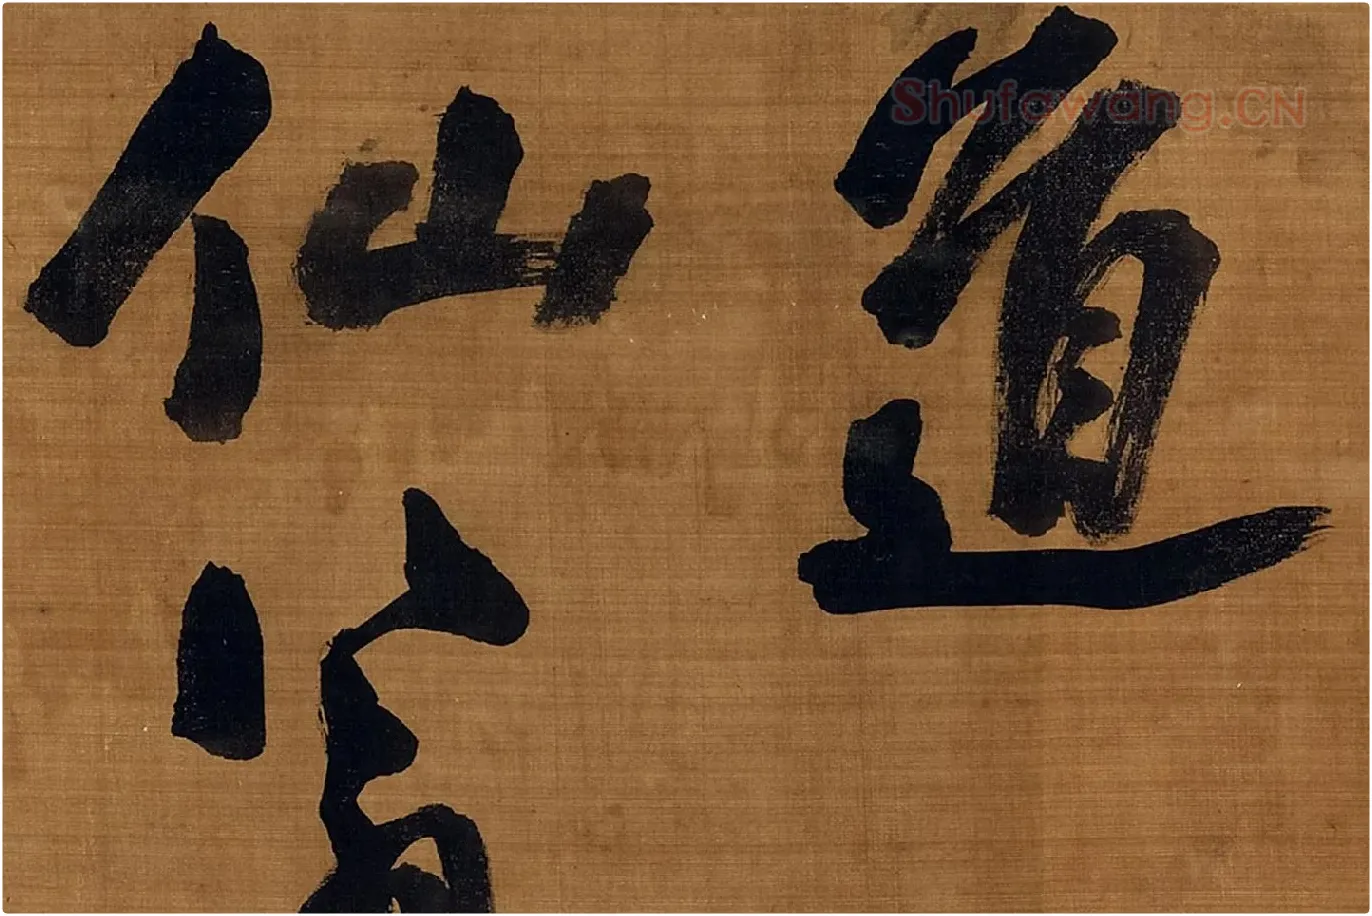 道
仙
Shufawang.CN